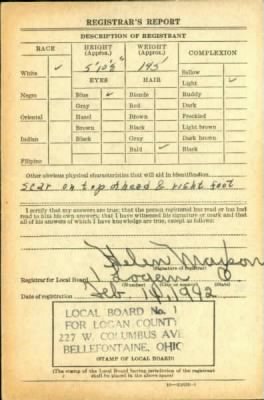 REGISTRAR'S REPORT
DESCRIPTION OF REGISTRANT
RACE HEIGHT (Approx.) WEIGHT (Approx.) COMPLEXION
White ✓ 5' 10½" 145 Sallow
EYES HAIR Light ✓
Negro Blue ✓ Blonde Ruddy
Gray Red Dark
Oriental Hazel Brown Freckled
Brown Black Light brown
Indian Black Gray Dark brown
Bald ✓ Black
Filipino
Other obvious physical characteristics that will aid in identification
Scar on top of head & right foot
I certify that my answers are true; that the person registered has read or has had
read to him his own answers; that I have witnessed his signature or mark and that
all of his answers of which I have knowledge are true, except as follows:
Helen
(Signature of registrar)
Registrar for Local Board 1 Logan O.
(Number) (City or county) (State)
Date of registration Feb 1942
LOCAL BOARD No. 1
FOR LOGAN COUNTY
227 W. COLUMBUS AVE
BELLEFONTAINE, OHIO
(STAMP OF LOCAL BOARD)
(The stamp of the Local Board having jurisdiction of the registrant
shall be placed in the above space.)